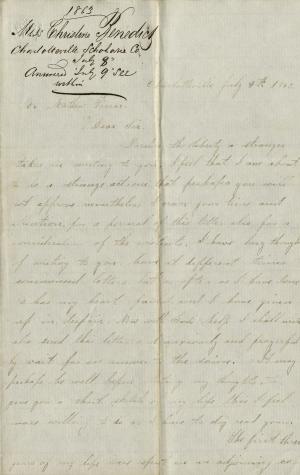 1863
Miss Christine Benedict
Charlotteville Schoharie Co
July 8"
Answered July 9" See
within
Charlotteville July 8th 1863
Mr Mathew Vassar
Dear Sir,
Pardon the liberty a stranger
takes in writing to you. I feel that I am about
to do a strange action, that perhaps you will
not approve, nevertheless I crave your time and
patience, for a perusal of this letter also for a
consideration of its contents. I have long thought
of writing to you. have at different times
commenced letters but as often as I have
so has my heart failed and I have given
up in despair. Now with Gods help I shall write
and send this letter and anxiously and prayerful
ly wait for an answer to the same. It may
perhaps be well before stating my thoughts to
give you a short sketch of my life this I feel
more willing to do as I have to day read yours.
The first three
years of my life were spent in an adjoining